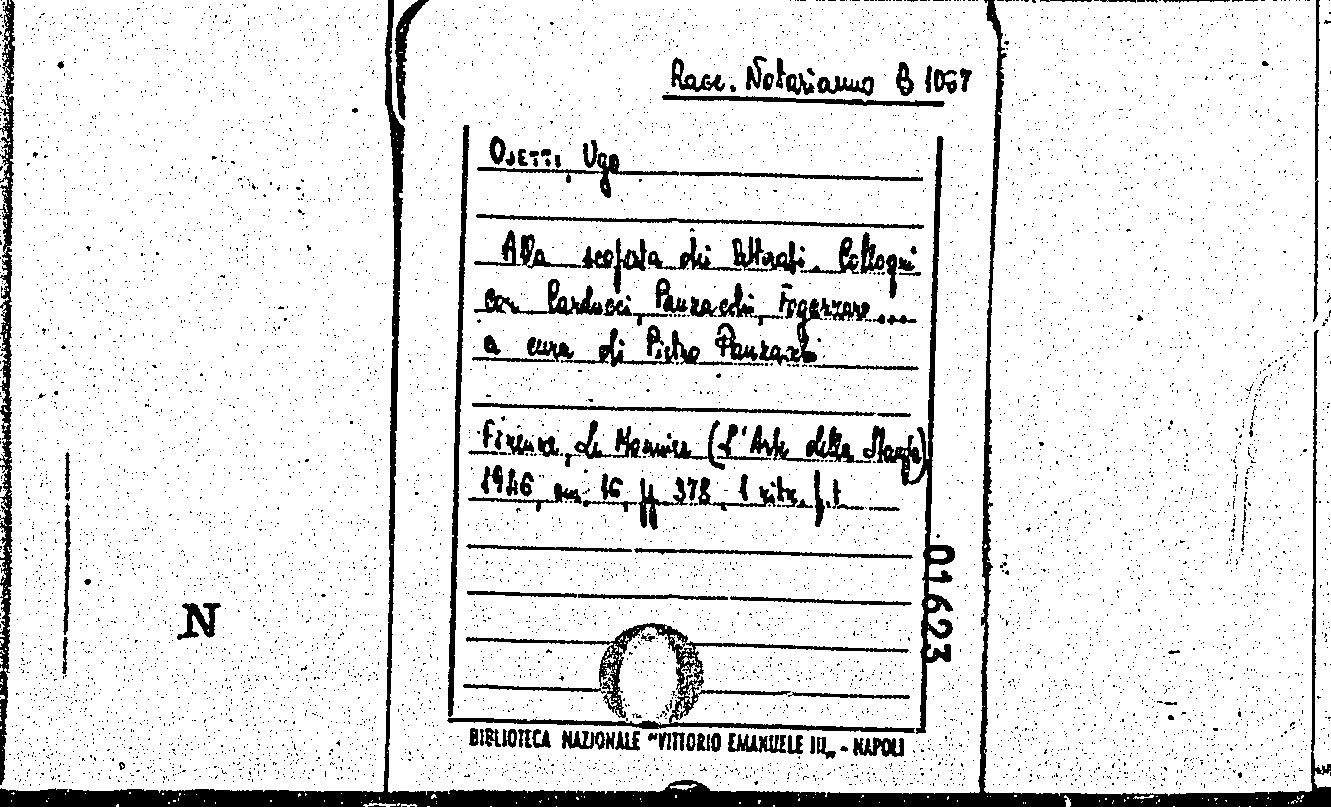 Racc. Notarianno B 1067
OJETTI, Ugo
Alla scoperta dei letterati. Colloqui
con Carducci, Panzacchi, Fogazzaro....
a cura di Pietro Pancrazi.
Firenze, Le Monnier (L'Arte della Stampa)
1946, in 16, pp 378, 1 ritr. f.t.
01623
N
BIBLIOTECA NAZIONALE "VITTORIO EMANUELE III„ - NAPOLI